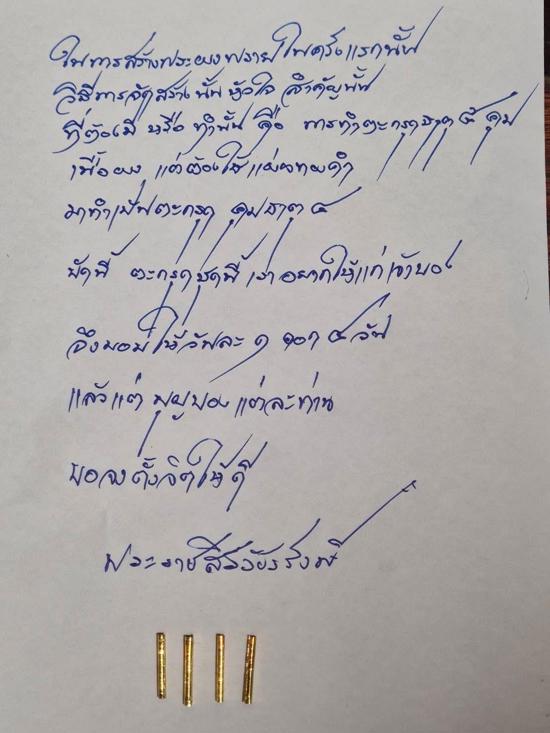 ในการสร้างพระผงพรายในครั้งแรกนั้น
วิธีการจัดสร้างนั้นหัวใจ สำคัญนั้น
ที่ต้องมี หรือ ทำนั้น คือ การทำตะกรุดธาตุ ๔ คุม
เนื้อผง แต่ต้องใช้แผ่นทองคำ
มาทำเป็นตะกรุด คุมธาตุ ๔
บัดนี้ ตะกรุดชุดนี้ เราอยากให้แก่เจ้าของ
จึงมอบให้วันละ ๑ ดอก ๔ วัน
แล้วแต่ บุญของ แต่ละท่าน
ขอจงตั้งจิตให้ดี